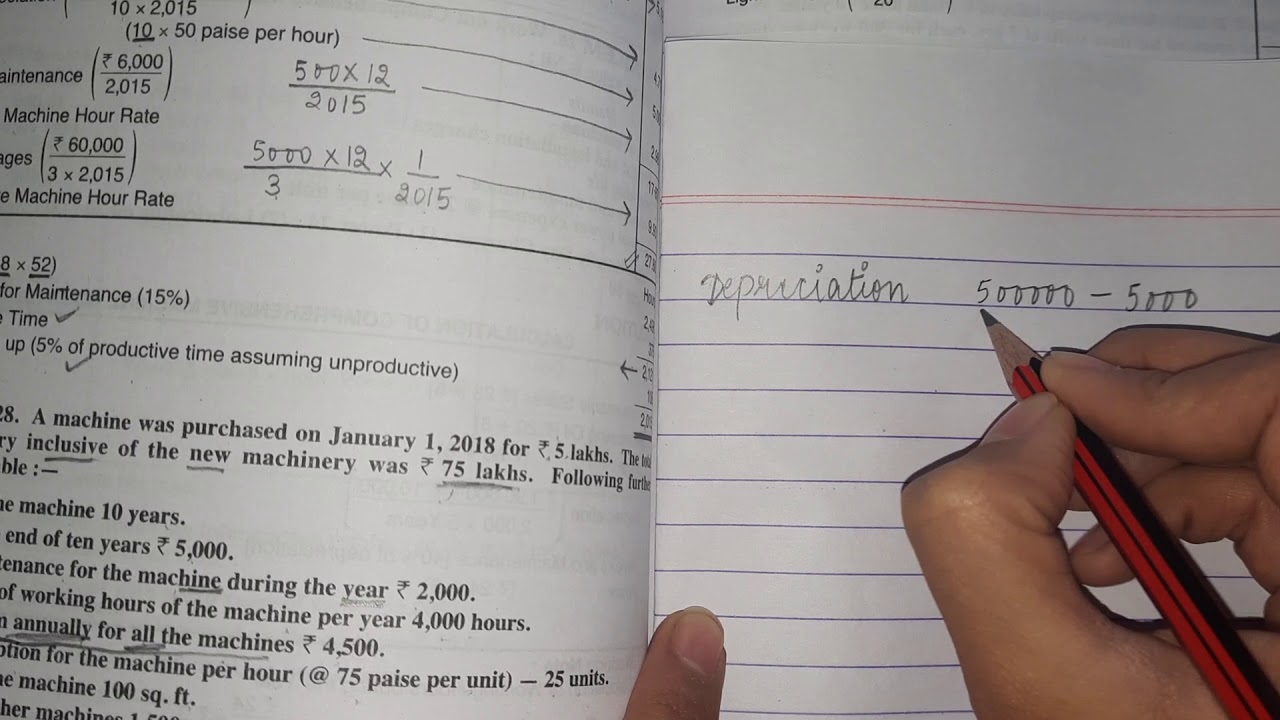 10 × 2,015
(10 × 50 paise per hour)
aintenance (₹ 6,000 / 2,015)
500 × 12 / 2015
Machine Hour Rate
ages (₹ 60,000 / 3 × 2,015)
5000 × 12 / 3 × 1 / 2015
e Machine Hour Rate
8 × 52)
for Maintenance (15%)
e Time ✓
up (5% of productive time assuming unproductive)
28. A machine was purchased on January 1, 2018 for ₹ 5 lakhs. The
ry inclusive of the new machinery was ₹ 75 lakhs. Following
ble :—
ne machine 10 years.
end of ten years ₹ 5,000.
tenance for the machine during the year ₹ 2,000.
of working hours of the machine per year 4,000 hours.
n annually for all the machines ₹ 4,500.
ption for the machine per hour (@ 75 paise per unit) — 25 units.
ne machine 100 sq. ft.
her machines
20
Depriciation 500000 – 5000